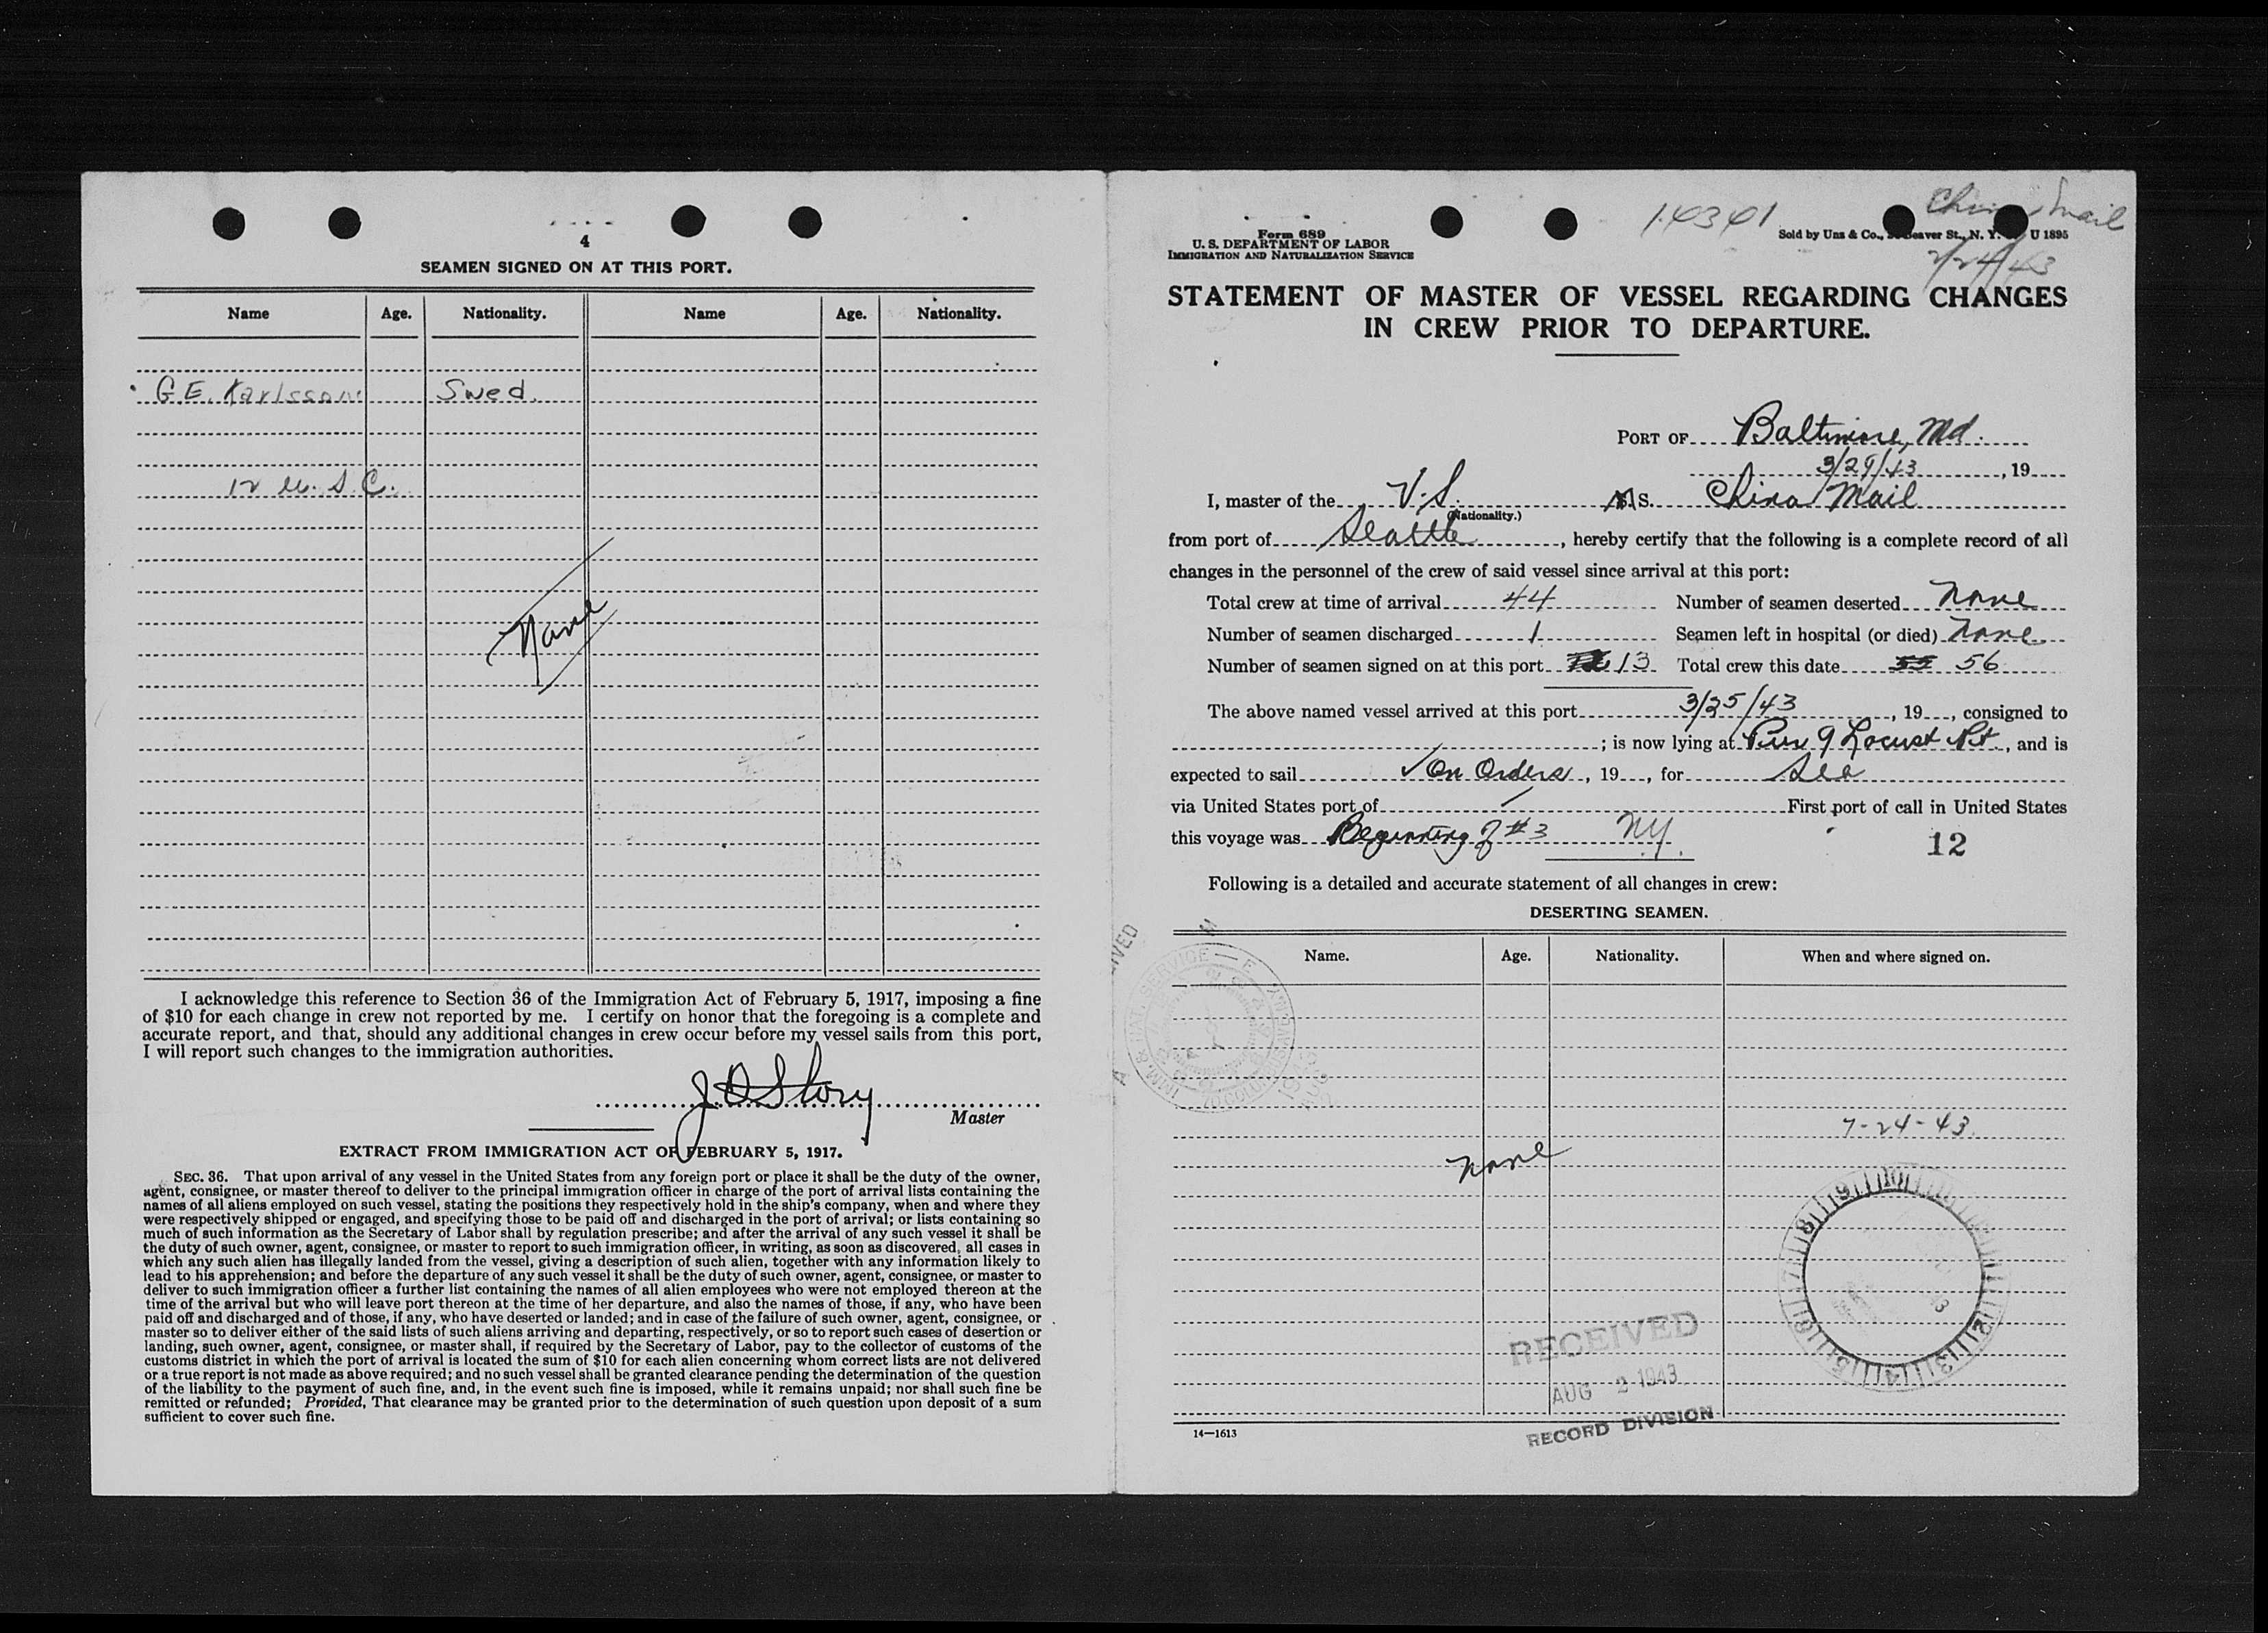 4
SEAMEN SIGNED ON AT THIS PORT.
Name Age. Nationality. Name Age. Nationality.
G.E. Karlsson Swed.
12 U.S.C.
None
I acknowledge this reference to Section 36 of the Immigration Act of February 5, 1917, imposing a fine
of $10 for each change in crew not reported by me. I certify on honor that the foregoing is a complete and
accurate report, and that, should any additional changes in crew occur before my vessel sails from this port,
I will report such changes to the immigration authorities.
J O Story
Master
EXTRACT FROM IMMIGRATION ACT OF FEBRUARY 5, 1917.
SEC. 36. That upon arrival of any vessel in the United States from any foreign port or place it shall be the duty of the owner,
agent, consignee, or master thereof to deliver to the principal immigration officer in charge of the port of arrival lists containing the
names of all aliens employed on such vessel, stating the positions they respectively hold in the ship's company, when and where they
were respectively shipped or engaged, and specifying those to be paid off and discharged in the port of arrival; or lists containing so
much of such information as the Secretary of Labor shall by regulation prescribe; and after the arrival of any such vessel it shall be
the duty of such owner, agent, consignee, or master to report to such immigration officer, in writing, as soon as discovered, all cases in
which any such alien has illegally landed from the vessel, giving a description of such alien, together with any information likely to
lead to his apprehension; and before the departure of any such vessel it shall be the duty of such owner, agent, consignee, or master to
deliver to such immigration officer a further list containing the names of all alien employees who were not employed thereon at the
time of the arrival but who will leave port thereon at the time of her departure, and also the names of those, if any, who have been
paid off and discharged and of those, if any, who have deserted or landed; and in case of the failure of such owner, agent, consignee, or
master so to deliver either of the said lists of such aliens arriving and departing, respectively, or so to report such cases of desertion or
landing, such owner, agent, consignee, or master shall, if required by the Secretary of Labor, pay to the collector of customs of the
customs district in which the port of arrival is located the sum of $10 for each alien concerning whom correct lists are not delivered
or a true report is not made as above required; and no such vessel shall be granted clearance pending the determination of the question
of the liability to the payment of such fine, and, in the event such fine is imposed, while it remains unpaid; nor shall such fine be
remitted or refunded; Provided, That clearance may be granted prior to the determination of such question upon deposit of a sum
sufficient to cover such fine.
China Mail
14341
Form 689
U. S. DEPARTMENT OF LABOR
IMMIGRATION AND NATURALIZATION SERVICE
Sold by Uns & Co., Beaver St., N. Y. U 1895
7/24/43
STATEMENT OF MASTER OF VESSEL REGARDING CHANGES
IN CREW PRIOR TO DEPARTURE.
PORT OF Baltimore, Md.
3/29/43, 19
I, master of the U.S. S. China Mail
(Nationality.)
from port of Seattle, hereby certify that the following is a complete record of all
changes in the personnel of the crew of said vessel since arrival at this port:
Total crew at time of arrival 44 Number of seamen deserted None
Number of seamen discharged 1 Seamen left in hospital (or died) None
Number of seamen signed on at this port 13 Total crew this date 55 56
The above named vessel arrived at this port 3/25/43, 19, consigned to
; is now lying at Pier 9 Locust Pt., and is
expected to sail On Orders, 19, for Sea
via United States port of First port of call in United States
this voyage was Beginning of #3 NY.
12
Following is a detailed and accurate statement of all changes in crew:
DESERTING SEAMEN.
Name. Age. Nationality. When and where signed on.
7-24-43
None
RECEIVED
AUG 2 1943
RECORD DIVISION
14—1613